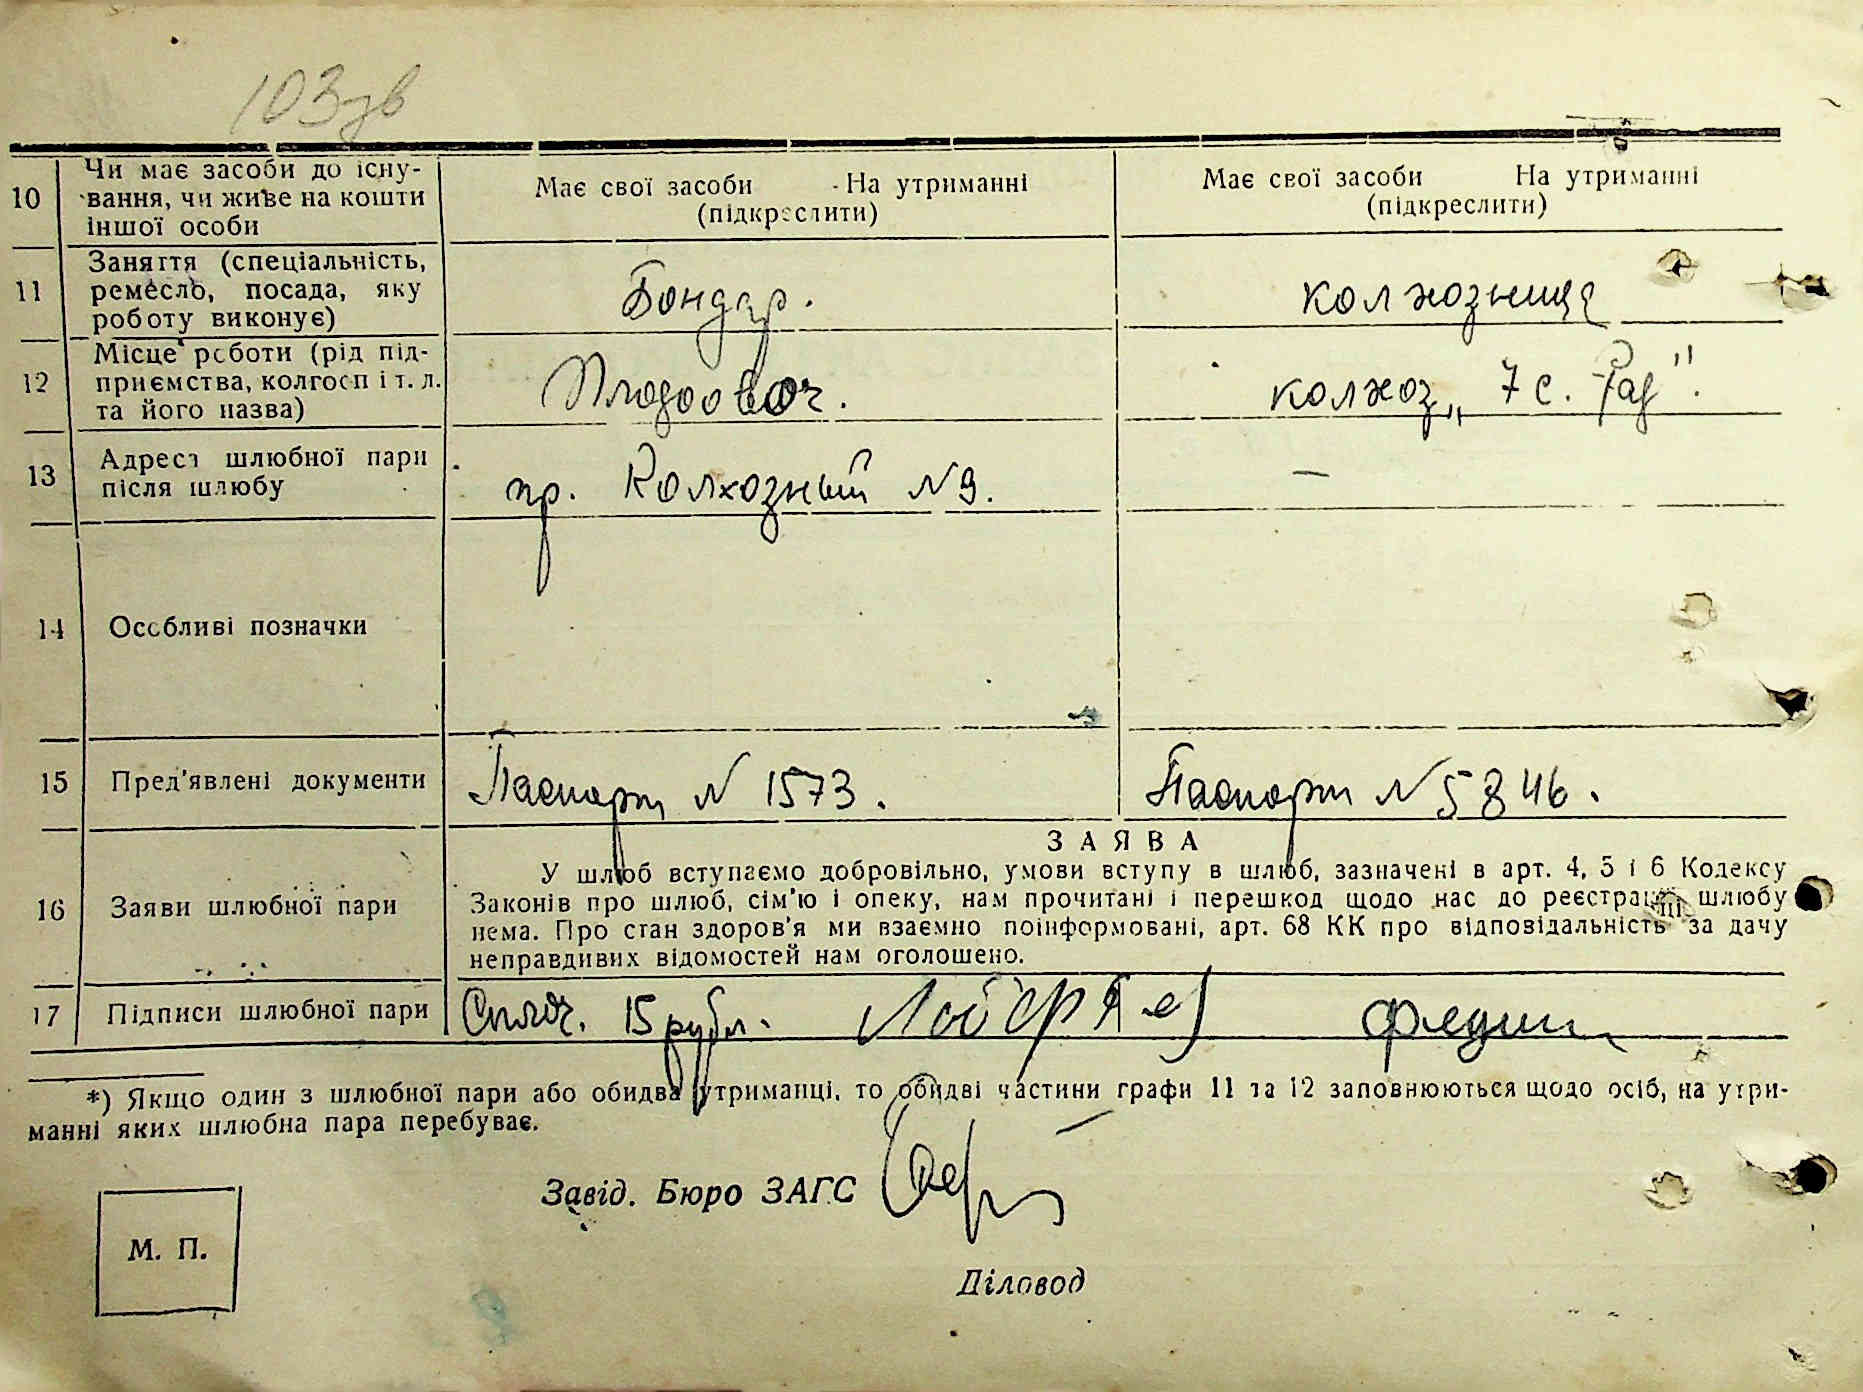 103зв
10 Чи має засоби до існу-
вання, чи живе на кошти
іншої особи
Має свої засоби На утриманні
(підкреслити)
Має свої засоби На утриманні
(підкреслити)
11 Заняття (спеціальність,
ремесло, посада, яку
роботу виконує)
Бондар.
колхозница
12 Місце роботи (рід під-
приємства, колгосп і т. л.
та його назва)
Плодоовоч.
колхоз „7 с. Рад".
13 Адреса шлюбної пари
після шлюбу
пр. Колхозный N 9.
—
14 Особливі позначки
15 Пред'явлені документи
Паспорт N 1573.
Паспорт N 5846.
16 Заяви шлюбної пари
ЗАЯВА
У шлюб вступаємо добровільно, умови вступу в шлюб, зазначені в арт. 4, 5 і 6 Кодексу
Законів про шлюб, сім'ю і опеку, нам прочитані і перешкод щодо нас до реєстрації шлюбу
нема. Про стан здоров'я ми взаємно поінформовані, арт. 68 КК про відповідальність за дачу
неправдивих відомостей нам оголошено.
17 Підписи шлюбної пари
Сплоч. 15 рубл.
*) Якщо один з шлюбної пари або обидва утриманці, то обидві частини графи 11 та 12 заповнюються щодо осіб, на утри-
манні яких шлюбна пара перебуває.
Завід. Бюро ЗАГС
М. П.
Діловод